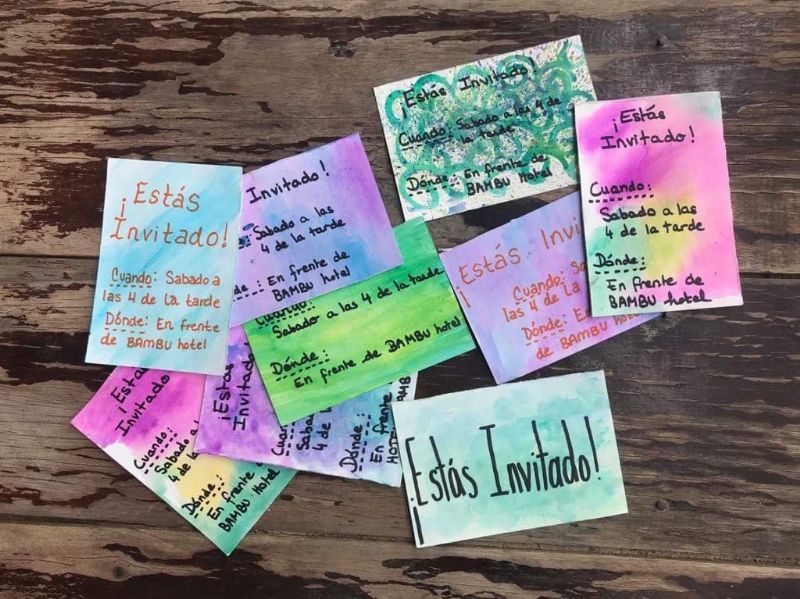 ¡Estás
Invitado!
Cuando: Sabado a
las 4 de la tarde
Dónde: En frente
de BAMBU hotel
Invitado!
Sabado a las
4 de la tarde
: En frente de
BAMBU hotel
¡Estás Invitado!
Cuando: Sabado a las 4 de
la tarde
Dónde: En frente de
BAMBU hotel
¡Estás
Invitado!
Cuando:
Sabado a las
4 de la tarde
Dónde:
En frente de
BAMBU hotel
Cuando:
Sabado a las 4 de la tarde
Dónde:
En frente de BAMBU hotel
¡Estás
Cuando:
las 4 de la
Dónde:
de BAMBU hotel
¡Estás
Invitado!
Cuando:
Sabado a
4 de la
Dónde:
En frente de
BAMBU hotel
¡Estás
Invitado
4 de la
Dónde:
En frente
BAMBU
¡Estás Invitado!